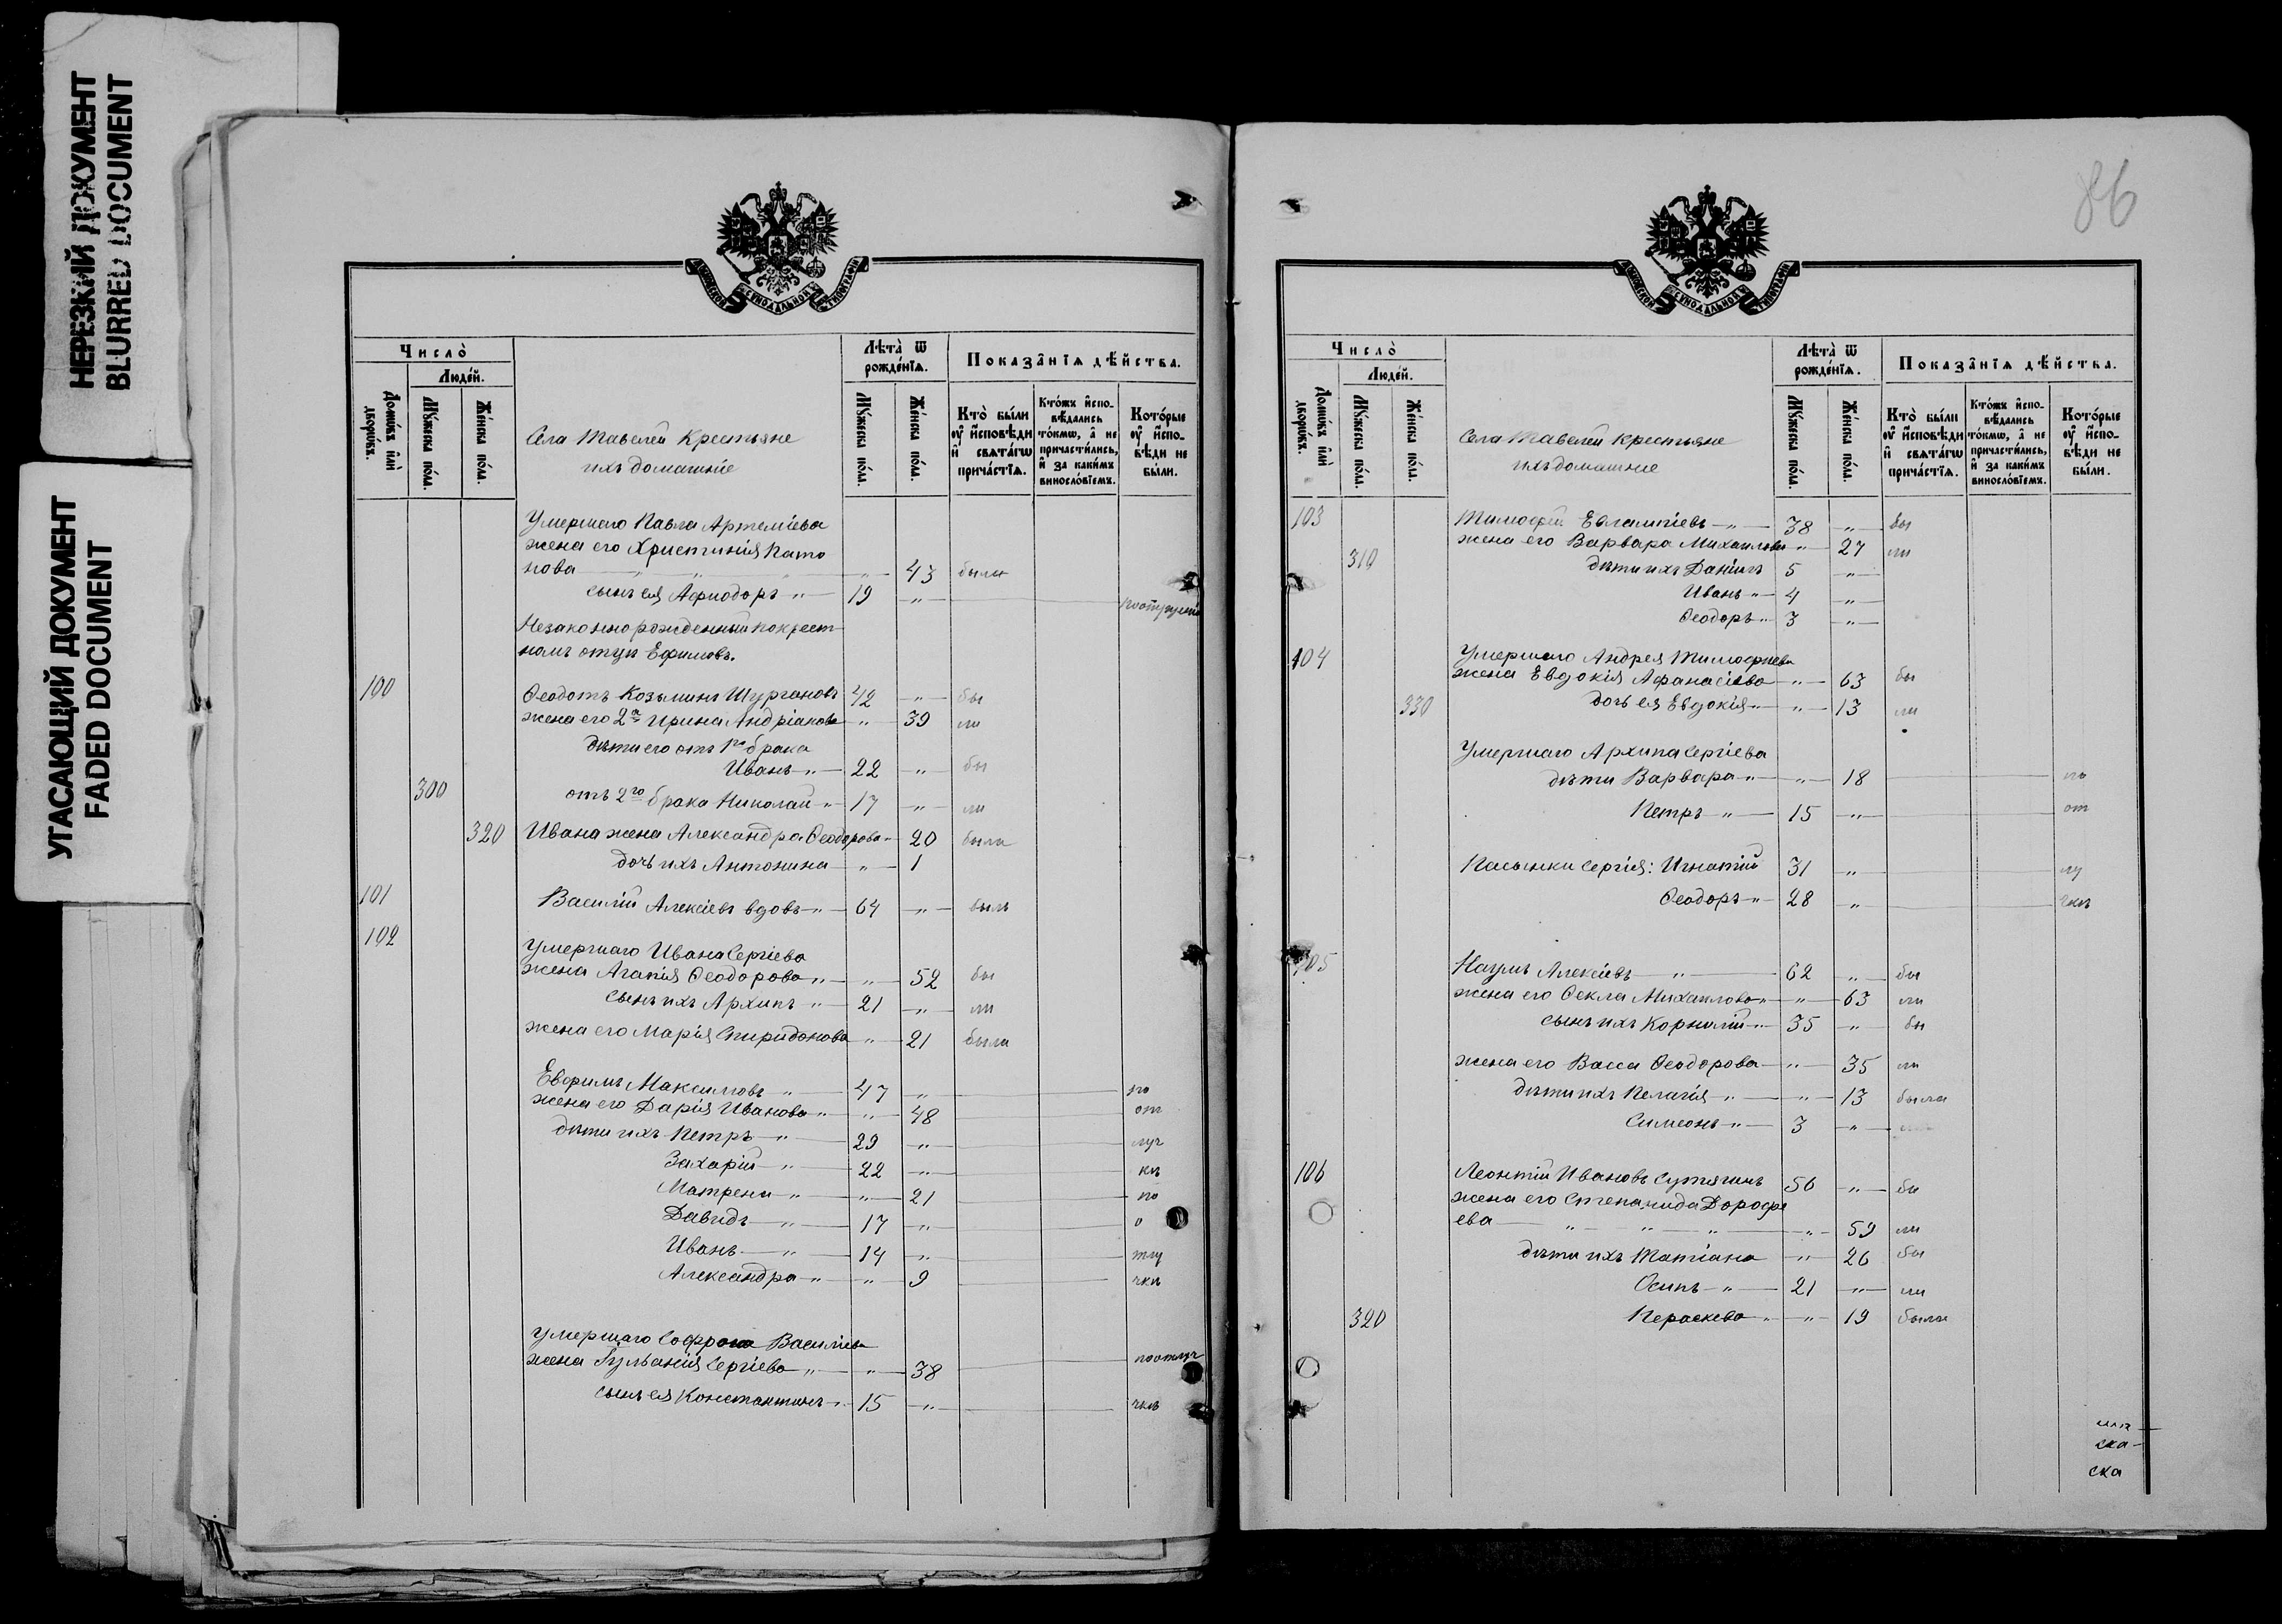 НЕРЕЗКИЙ ДОКУМЕНТ
BLURRED DOCUMENT
УГАСАЮЩИЙ ДОКУМЕНТ
FADED DOCUMENT
МОСКОВСКОЙ СѴНОДАЛЬНОЙ ТИПОГРАФІИ
Число̀
Людей.
Домѡвъ или дворѡвъ.
Мꙋжеска пола.
Женска пола.
Села Тавелей Крестьяне
ихъ домашніе
Лѣта ѿ рожденїѧ.
Мꙋжеска пола.
Женска пола.
Показанїѧ дѣйства.
Кто были оу исповѣди и свѧтагѡ причастїѧ.
Ктожъ исповѣдались токмѡ, а не причастились, и за какимъ винословїемъ.
Которые оу исповѣди не были.
Умершаго Павла Артеміева
жена его Христинія Пато
нова " " 43 была
сынъ ея Афиодоръ " 19 "
Незаконнорожденный по крест
номъ отцѣ Ефимовъ.
100 Ѳеодотъ Козьминъ Шургановъ 42 " бы
жена его 2ᵃ Ирина Андріанова " 39 ли
дѣти его отъ 1го брака
Иванъ " 22 " бы
300 отъ 2го брака Николай " 17 " ли
320 Ивана жена Александра Ѳеодорова 20 была
дочь ихъ Антонина " 1
101 Василій Алексіевъ вдовъ " 64 " былъ
102
Умершаго Ивана Сергіева
жена Агапія Ѳеодорова " " 52 бы
сынъ ихъ Архипъ " 21 " ли
жена его Марія Спиридонова " 21 была
Евфимъ Максимовъ " 47 " по
жена его Дарія Иванова " " 48 от
дѣти ихъ Петръ " 29 " луч
Захарій " 22 " къ
Матрена " " 21 по
Давидъ " 17 " о
Иванъ " 14 " тлу
Александра " " 9 чкѣ
Умершаго Софрона Василіева
жена Іульянія Сергіева " " 38 поотлуч
сынъ ея Константинъ " 15 " чкѣ
86
МОСКОВСКОЙ СѴНОДАЛЬНОЙ ТИПОГРАФІИ
Число̀
Людей.
Домѡвъ или дворѡвъ.
Мꙋжеска пола.
Женска пола.
Села Тавелей Крестьяне
ихъ домашніе
Лѣта ѿ рожденїѧ.
Мꙋжеска пола.
Женска пола.
Показанїѧ дѣйства.
Кто были оу исповѣди и свѧтагѡ причастїѧ.
Ктожъ исповѣдались токмѡ, а не причастились, и за какимъ винословїемъ.
Которые оу исповѣди не были.
103 Тимофей Евлампіевъ " 38 " бы
жена его Варвара Михаилова " 27 ли
310 дѣти ихъ Даніилъ 5 "
Иванъ " 4 "
Ѳеодоръ " 3 "
104 Умершаго Андрея Тимофиева
жена Евдокія Афанасіева " 63 бы
330 дочь ея Евдокія " " 13 ли
Умершаго Архипа Сергіева
дѣти Варвара " " 18 по
Петръ " 15 " от
Пасынки Сергія: Игнатій 31 " лу
Ѳеодоръ " 28 " чкѣ
105 Наумъ Алексіевъ " 62 " бы
жена его Ѳекла Михаилова " " 63 ли
сынъ ихъ Корнилій " 35 " бы
жена его Васса Ѳеодорова " 35 ли
дѣти ихъ Пелагія " " 13 была
Симеонъ " 3 "
106 Леонтій Ивановъ Сутягинъ 56 " бы
жена его Степанида Дорофе
ева " " " " 59 ли
дѣти ихъ Татіана " 26 бы
Осипъ " 21 " ли
320 Пераскева " " 19 была
ска
ска